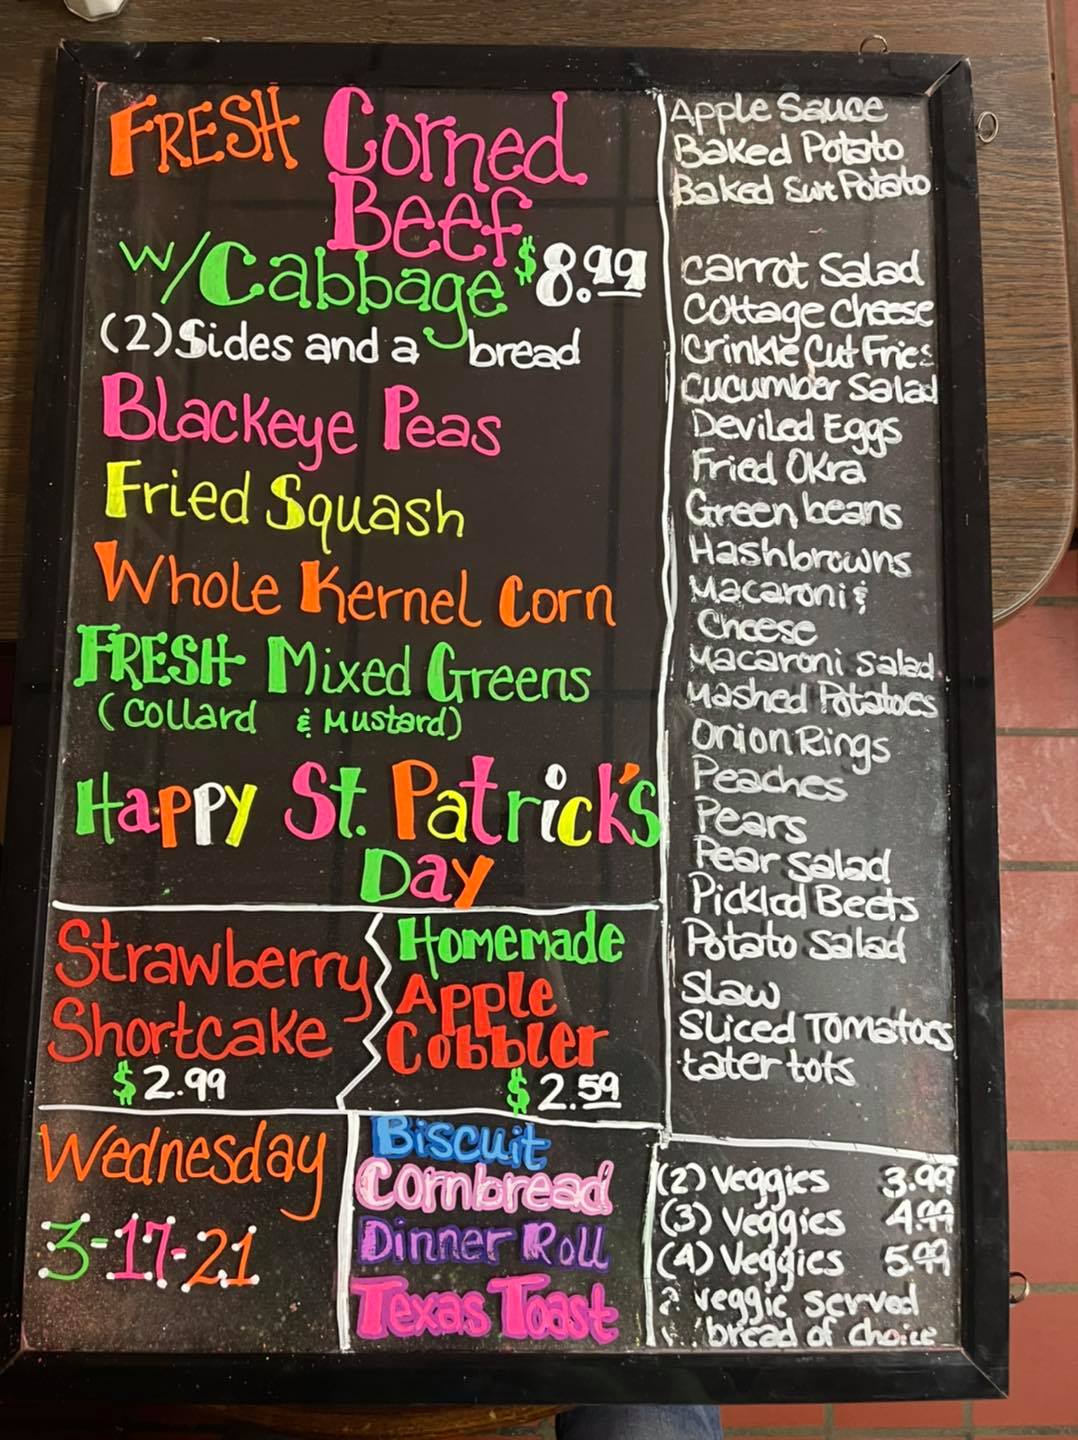 FRESH Corned
Beef
w/Cabbage $8.99
(2) Sides and a bread
Blackeye Peas
Fried Squash
Whole Kernel Corn
FRESH Mixed Greens
(Collard & Mustard)
Happy St. Patrick's
Day
Strawberry
Shortcake
$2.99
Homemade
Apple
Cobbler
$2.59
Wednesday
3-17-21
Biscuit
Cornbread
Dinner Roll
Texas Toast
Apple Sauce
Baked Potato
Baked Swt Potato
Carrot Salad
Cottage Cheese
Crinkle Cut Fries
Cucumber Salad
Deviled Eggs
Fried Okra
Green beans
Hashbrowns
Macaroni &
Cheese
Macaroni Salad
Mashed Potatoes
Onion Rings
Peaches
Pears
Pear Salad
Pickled Beets
Potato Salad
Slaw
Sliced Tomatoes
tater tots
(2) Veggies 3.99
(3) Veggies 4.99
(4) Veggies 5.99
veggie served
bread of choice